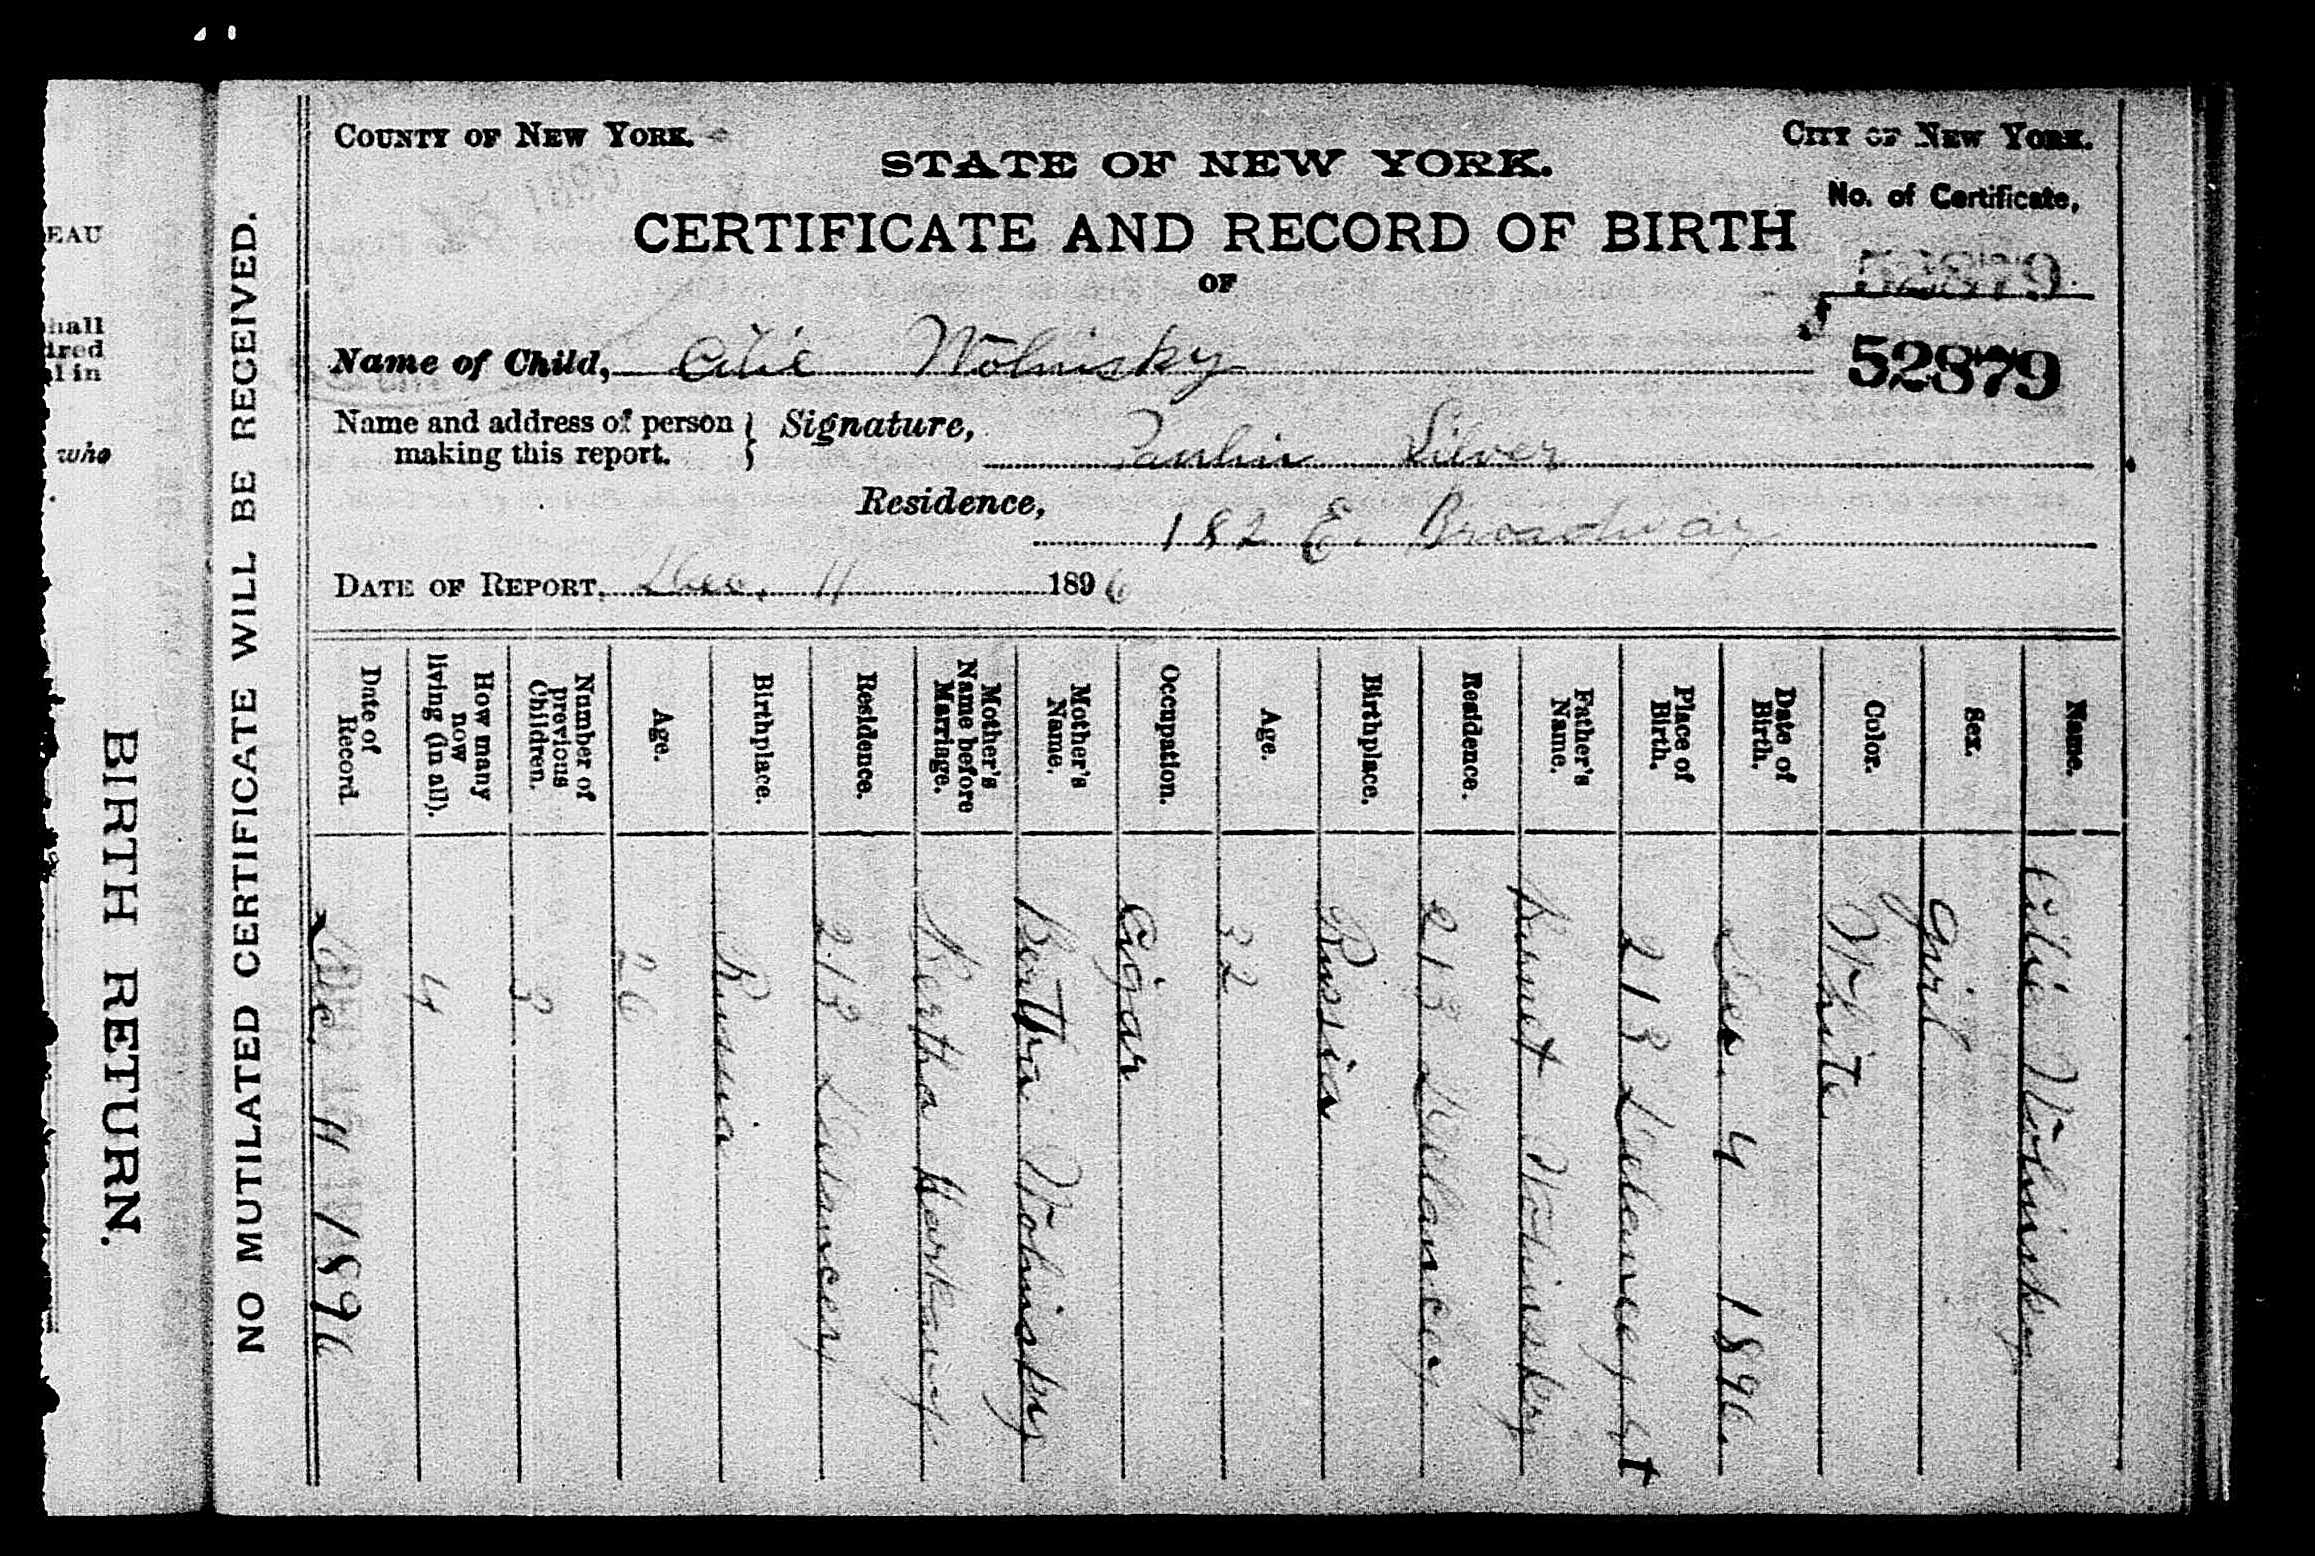 EAU
hall
ired
l in
who
BIRTH RETURN.
NO MUTILATED CERTIFICATE WILL BE RECEIVED.
COUNTY OF NEW YORK.
CITY OF NEW YORK.
STATE OF NEW YORK.
No. of Certificate,
CERTIFICATE AND RECORD OF BIRTH
52879
OF
Name of Child, Cilie Wolinsky
52879
Name and address of person making this report. } Signature, Paulin Silver
Residence, 182 E. Broadway
DATE OF REPORT, Dec. 11 1896
Name. Cilie Wolinsky
Sex. Girl
Color. White
Date of Birth. Dec. 4 1896
Place of Birth. 213 Delancey St
Father's Name. Wolinsky
Residence. 213 Delancey
Birthplace. Russia
Age. 32
Occupation. Cigar
Mother's Name. Bertha Wolinsky
Mother's Name before Marriage. Bertha
Residence. 213 Delancey
Birthplace. Russia
Age. 26
Number of previous Children. 3
How many now living (in all). 4
Date of Record. Dec. 11 1896